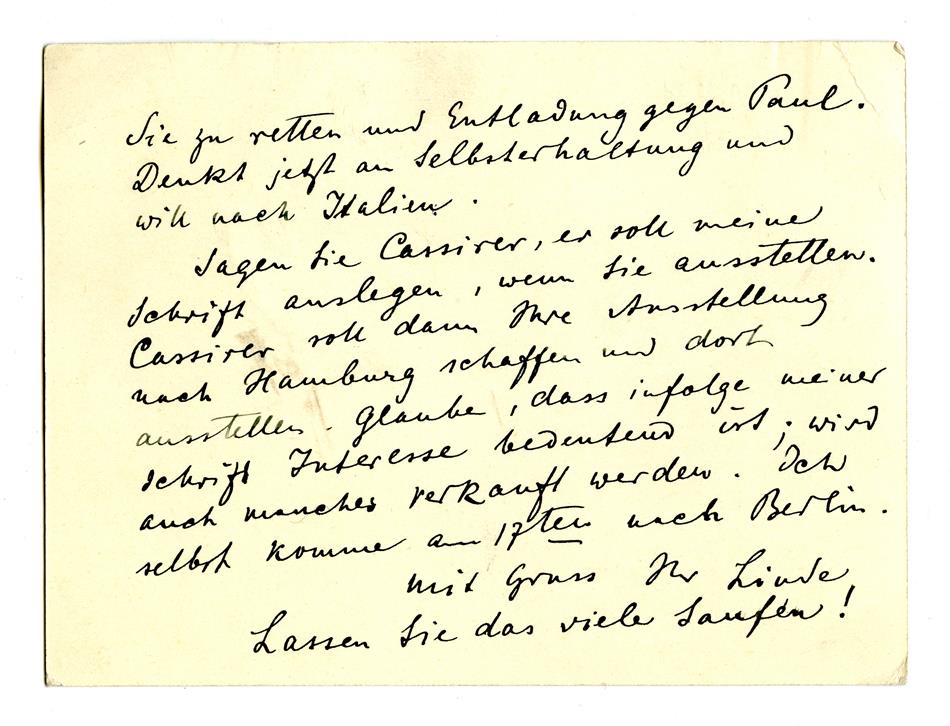 Sie zu retten und Entladung gegen Paul.
Denkt jetzt an Selbsterhaltung und
will nach Italien.
Sagen Sie Cassirer, er soll meine
Schrift auslegen, wenn Sie ausstellen.
Cassirer soll dann Ihre Ausstellung
nach Hamburg schaffen und dort
ausstellen. Glaube, dass infolge meiner
Schrift Interesse bedeutend ist; wird
auch manches verkauft werden. Ich
selbst komme am 17ten nach Berlin.
Mit Gruss Ihr Linde
Lassen Sie das viele Saufen!